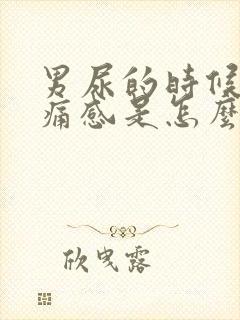 男尿的時候
痛感是怎麼
欣曳露